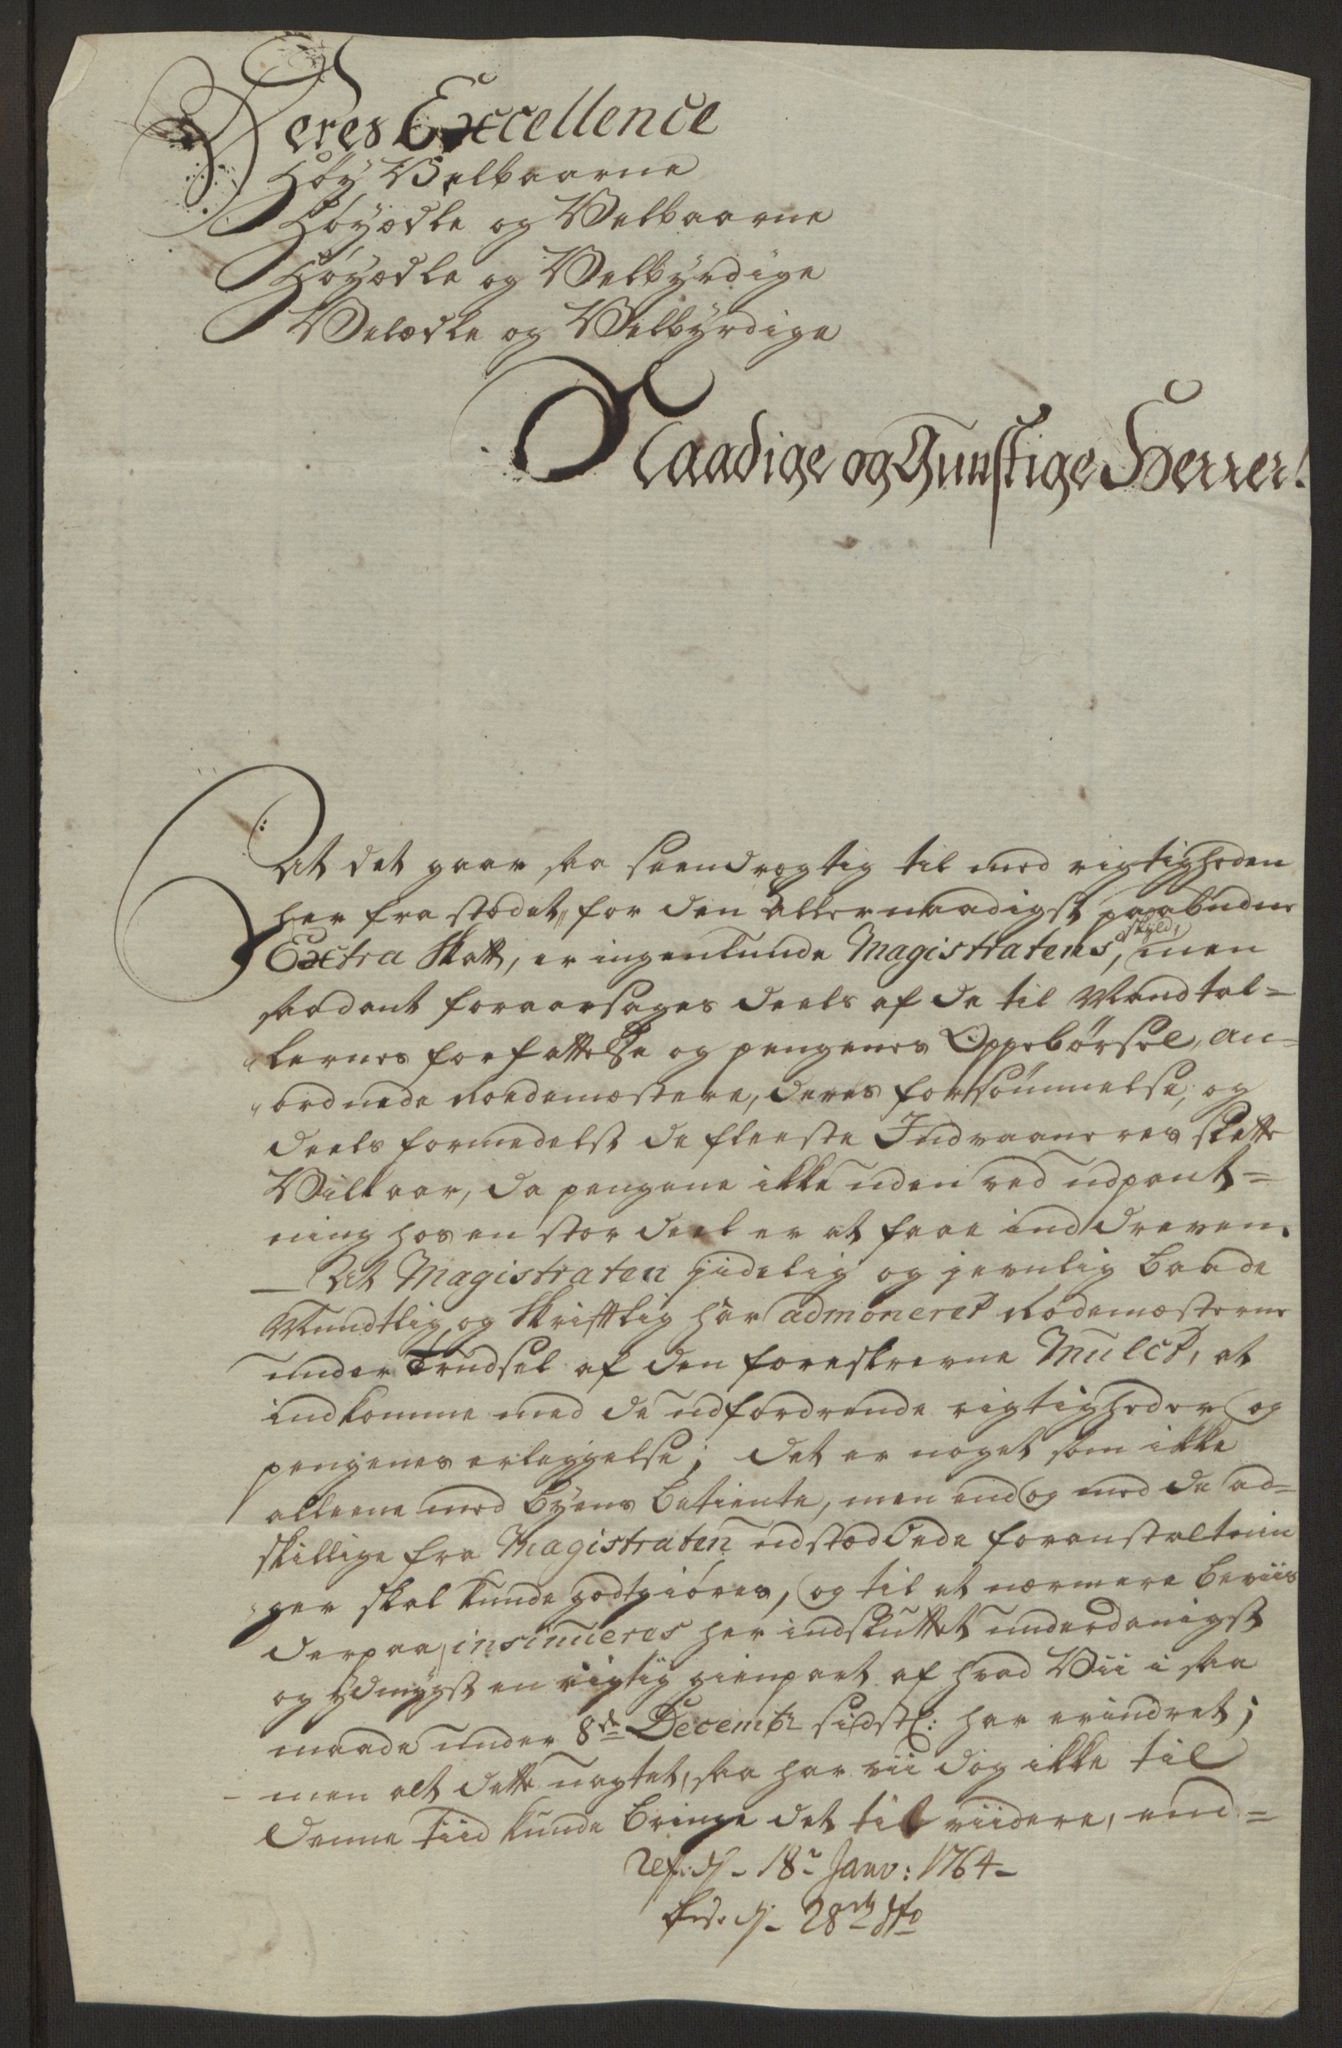 Deres Excellence
Höy Velbaarne
Höyædle og Velbaarne
Höyædle og Velbyrdige
Velædle og Velbyrdige
Naadige og Gunstige Herrer!
At det gaar saa seendrægtig til med rigtigheden
her fra stædet, for den allernaadigst paabudne
Extra Skatt, er ingenlunde Magistratens skyld, men
saadant foraarsages deels af de til Mandtal-
lernes forfattelse og pengenes Oppebørsel, an-
ordnede Rodemestere, deres forsømmelse, og
deels formedelst de fleeste Indvaaneres slette
Vilkaar, da pengene ikke uden ved udpant-
ning hos en stor deel er at faae inddreven.
At Magistraten jidelig og jevnlig baade
Mundtlig og Skrifftlig har admoneret Rodemesterne
under Trudsel af den foreskrevne Mulct, at
indkomme med de udfordrende rigtigheder og
pengenes erleggelse; det er noget som ikke
alleene med Byens Betiente, men endog med de ad-
skillige fra Magistraten udstædede foranstaltnin
ger skal kunde godtgiöres, og til et nærmere beviis
derpaa, insinueres her indsluttet underdanigst
og ydmygst en rigtig gienpart af hvad Vii i saa
maade under 8de Decembr sidstl: har erindret;
men alt dette uagtet, saa har vii dog ikke til
denne tiid kunde bringe det til viidere, end-
18 Janv: 1764
28